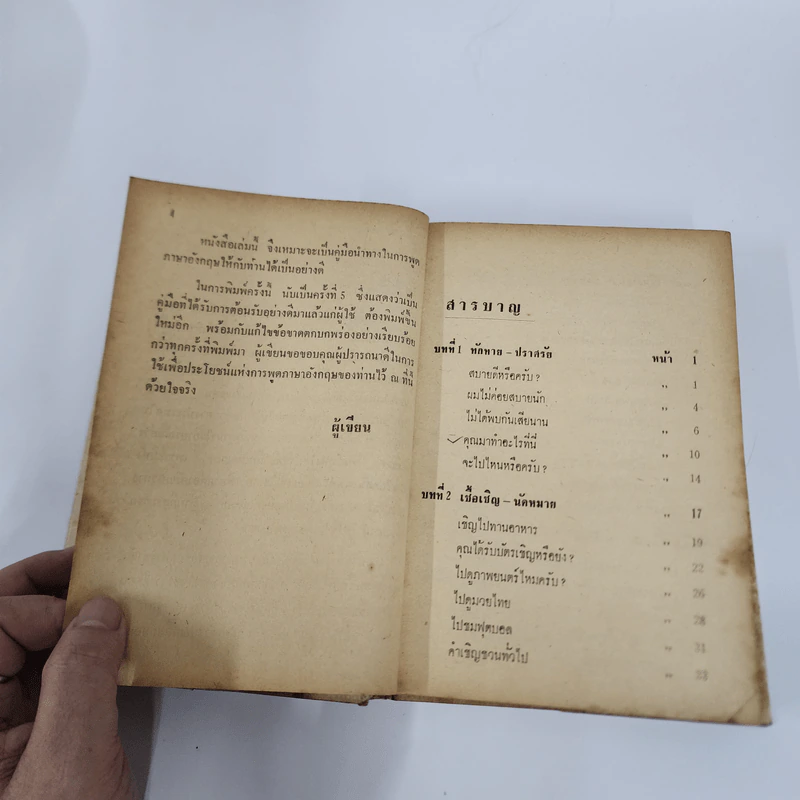 หนังสือเล่มนี้ จึงเหมาะจะเป็นคู่มือนำทางในการพูด
ภาษาอังกฤษให้กับท่านได้เป็นอย่างดี
ในการพิมพ์ครั้งนี้ นับเป็นครั้งที่ 5 ซึ่งแสดงว่าเป็น
คู่มือที่ได้รับการต้อนรับอย่างดีมาแล้วแก่ผู้ใช้ ต้องพิมพ์ขึ้น
ใหม่อีก พร้อมกับแก้ไขข้อขาดตกบกพร่องอย่างเรียบร้อย
กว่าทุกครั้งที่พิมพ์มา ผู้เขียนขอขอบคุณผู้ปรารถนาดีในการ
ใช้เพื่อประโยชน์แห่งการพูดภาษาอังกฤษของท่านไว้ ณ ที่นี้
ด้วยใจจริง
ผู้เขียน
สารบาญ
บทที่ 1 ทักทาย – ปราศรัย หน้า 1
สบายดีหรือครับ? " 1
ผมไม่ค่อยสบายนัก " 4
ไม่ได้พบกันเสียนาน " 6
คุณมาทำอะไรที่นี่ " 10
จะไปไหนหรือครับ? " 14
บทที่ 2 เชื้อเชิญ – นัดหมาย " 17
เชิญไปทานอาหาร " 19
คุณได้รับบัตรเชิญหรือยัง? " 22
ไปดูภาพยนตร์ไหมครับ? " 26
ไปดูมวยไทย " 28
ไปชมฟุตบอล " 31
คำเชิญชวนทั่วไป " 33